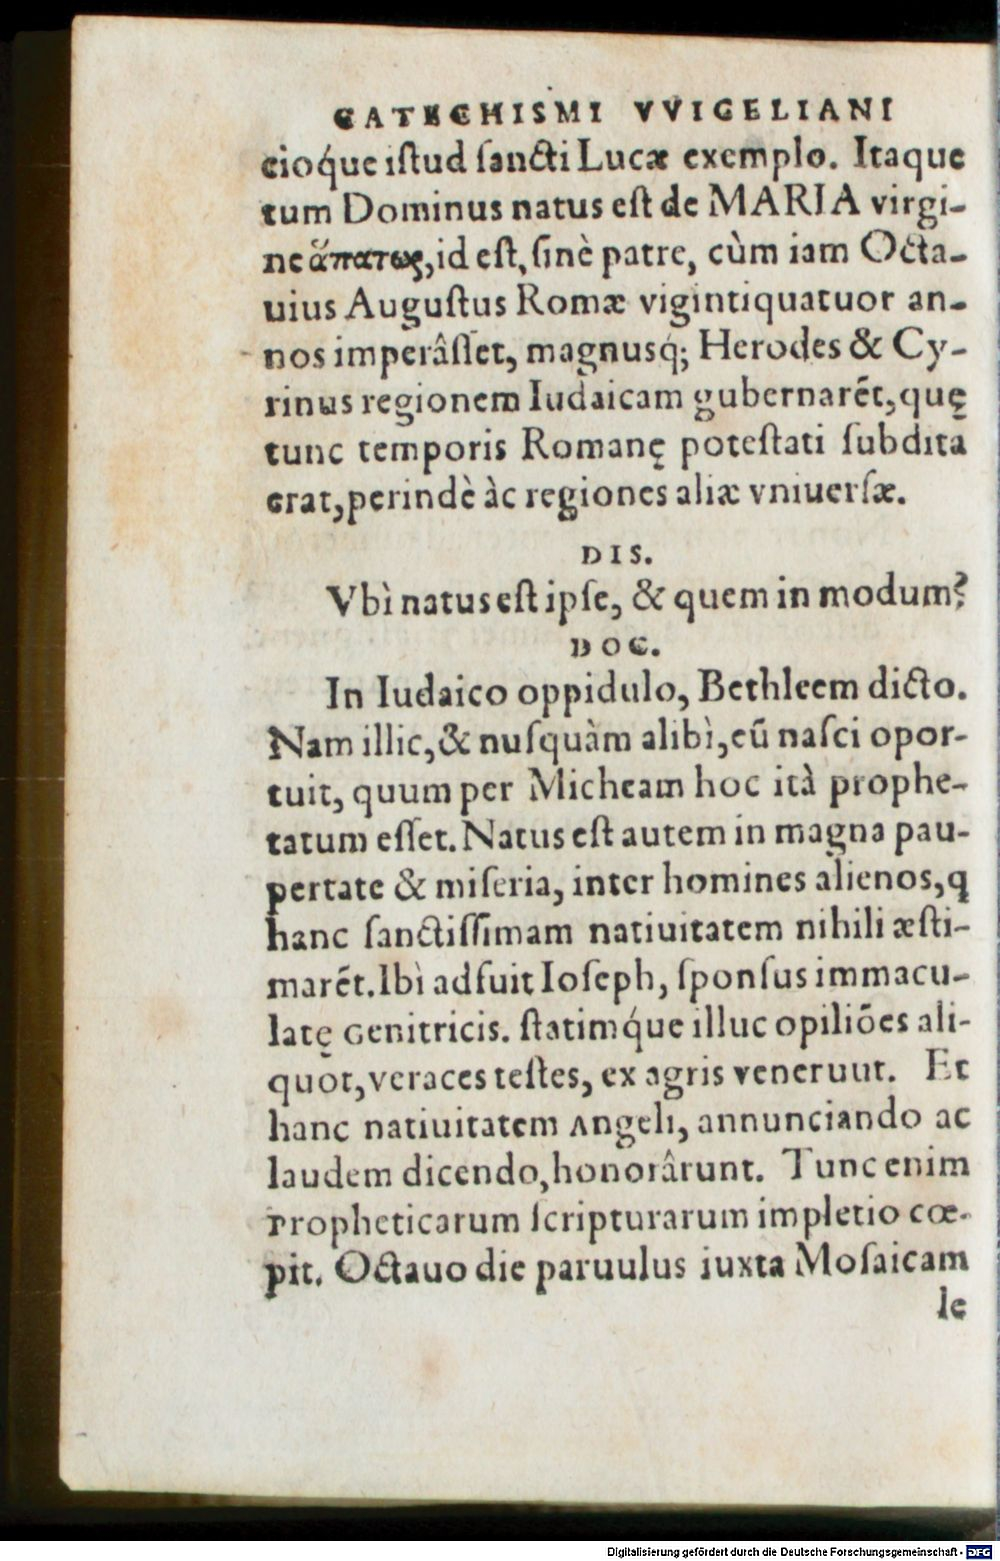 CATECHISMI VVIGELIANI
cioq́ue iſtud ſancti Lucæ exemplo. Itaque
tum Dominus natus eſt de MARIA virgi-
ne ἅπατως, id eſt, ſinè patre, cùm iam Octa-
uius Auguſtus Romæ vigintiquatuor an-
nos imperâſſet, magnusq́; Herodes & Cy-
rinus regionem Iudaicam gubernarēt, quę
tunc temporis Romanę poteſtati ſubdita
erat, perindè àc regiones aliæ vniuerſæ.
DIS.
Vbì natus eſt ipſe, & quem in modum?
DOC.
In Iudaico oppidulo, Bethleem dicto.
Nam illic, & nuſquàm alibì, eū naſci opor-
tuit, quum per Micheam hoc ità prophe-
tatum eſſet. Natus eſt autem in magna pau-
pertate & miſeria, inter homines alienos, q
hanc ſanctiſſimam natiuitatem nihili æſti-
marēt. Ibì adfuit Ioſeph, ſponſus immacu-
latę Genitricis. ſtatimq́ue illuc opiliōes ali-
quot, veraces teſtes, ex agris veneruut. Et
hanc natiuitatem Angeli, annunciando ac
laudem dicendo, honorârunt. Tunc enim
Propheticarum ſcripturarum impletio cœ-
pit. Octauo die paruulus iuxta Moſaicam
le
Digitalisierung gefördert durch die Deutsche Forschungsgemeinschaft - DFG